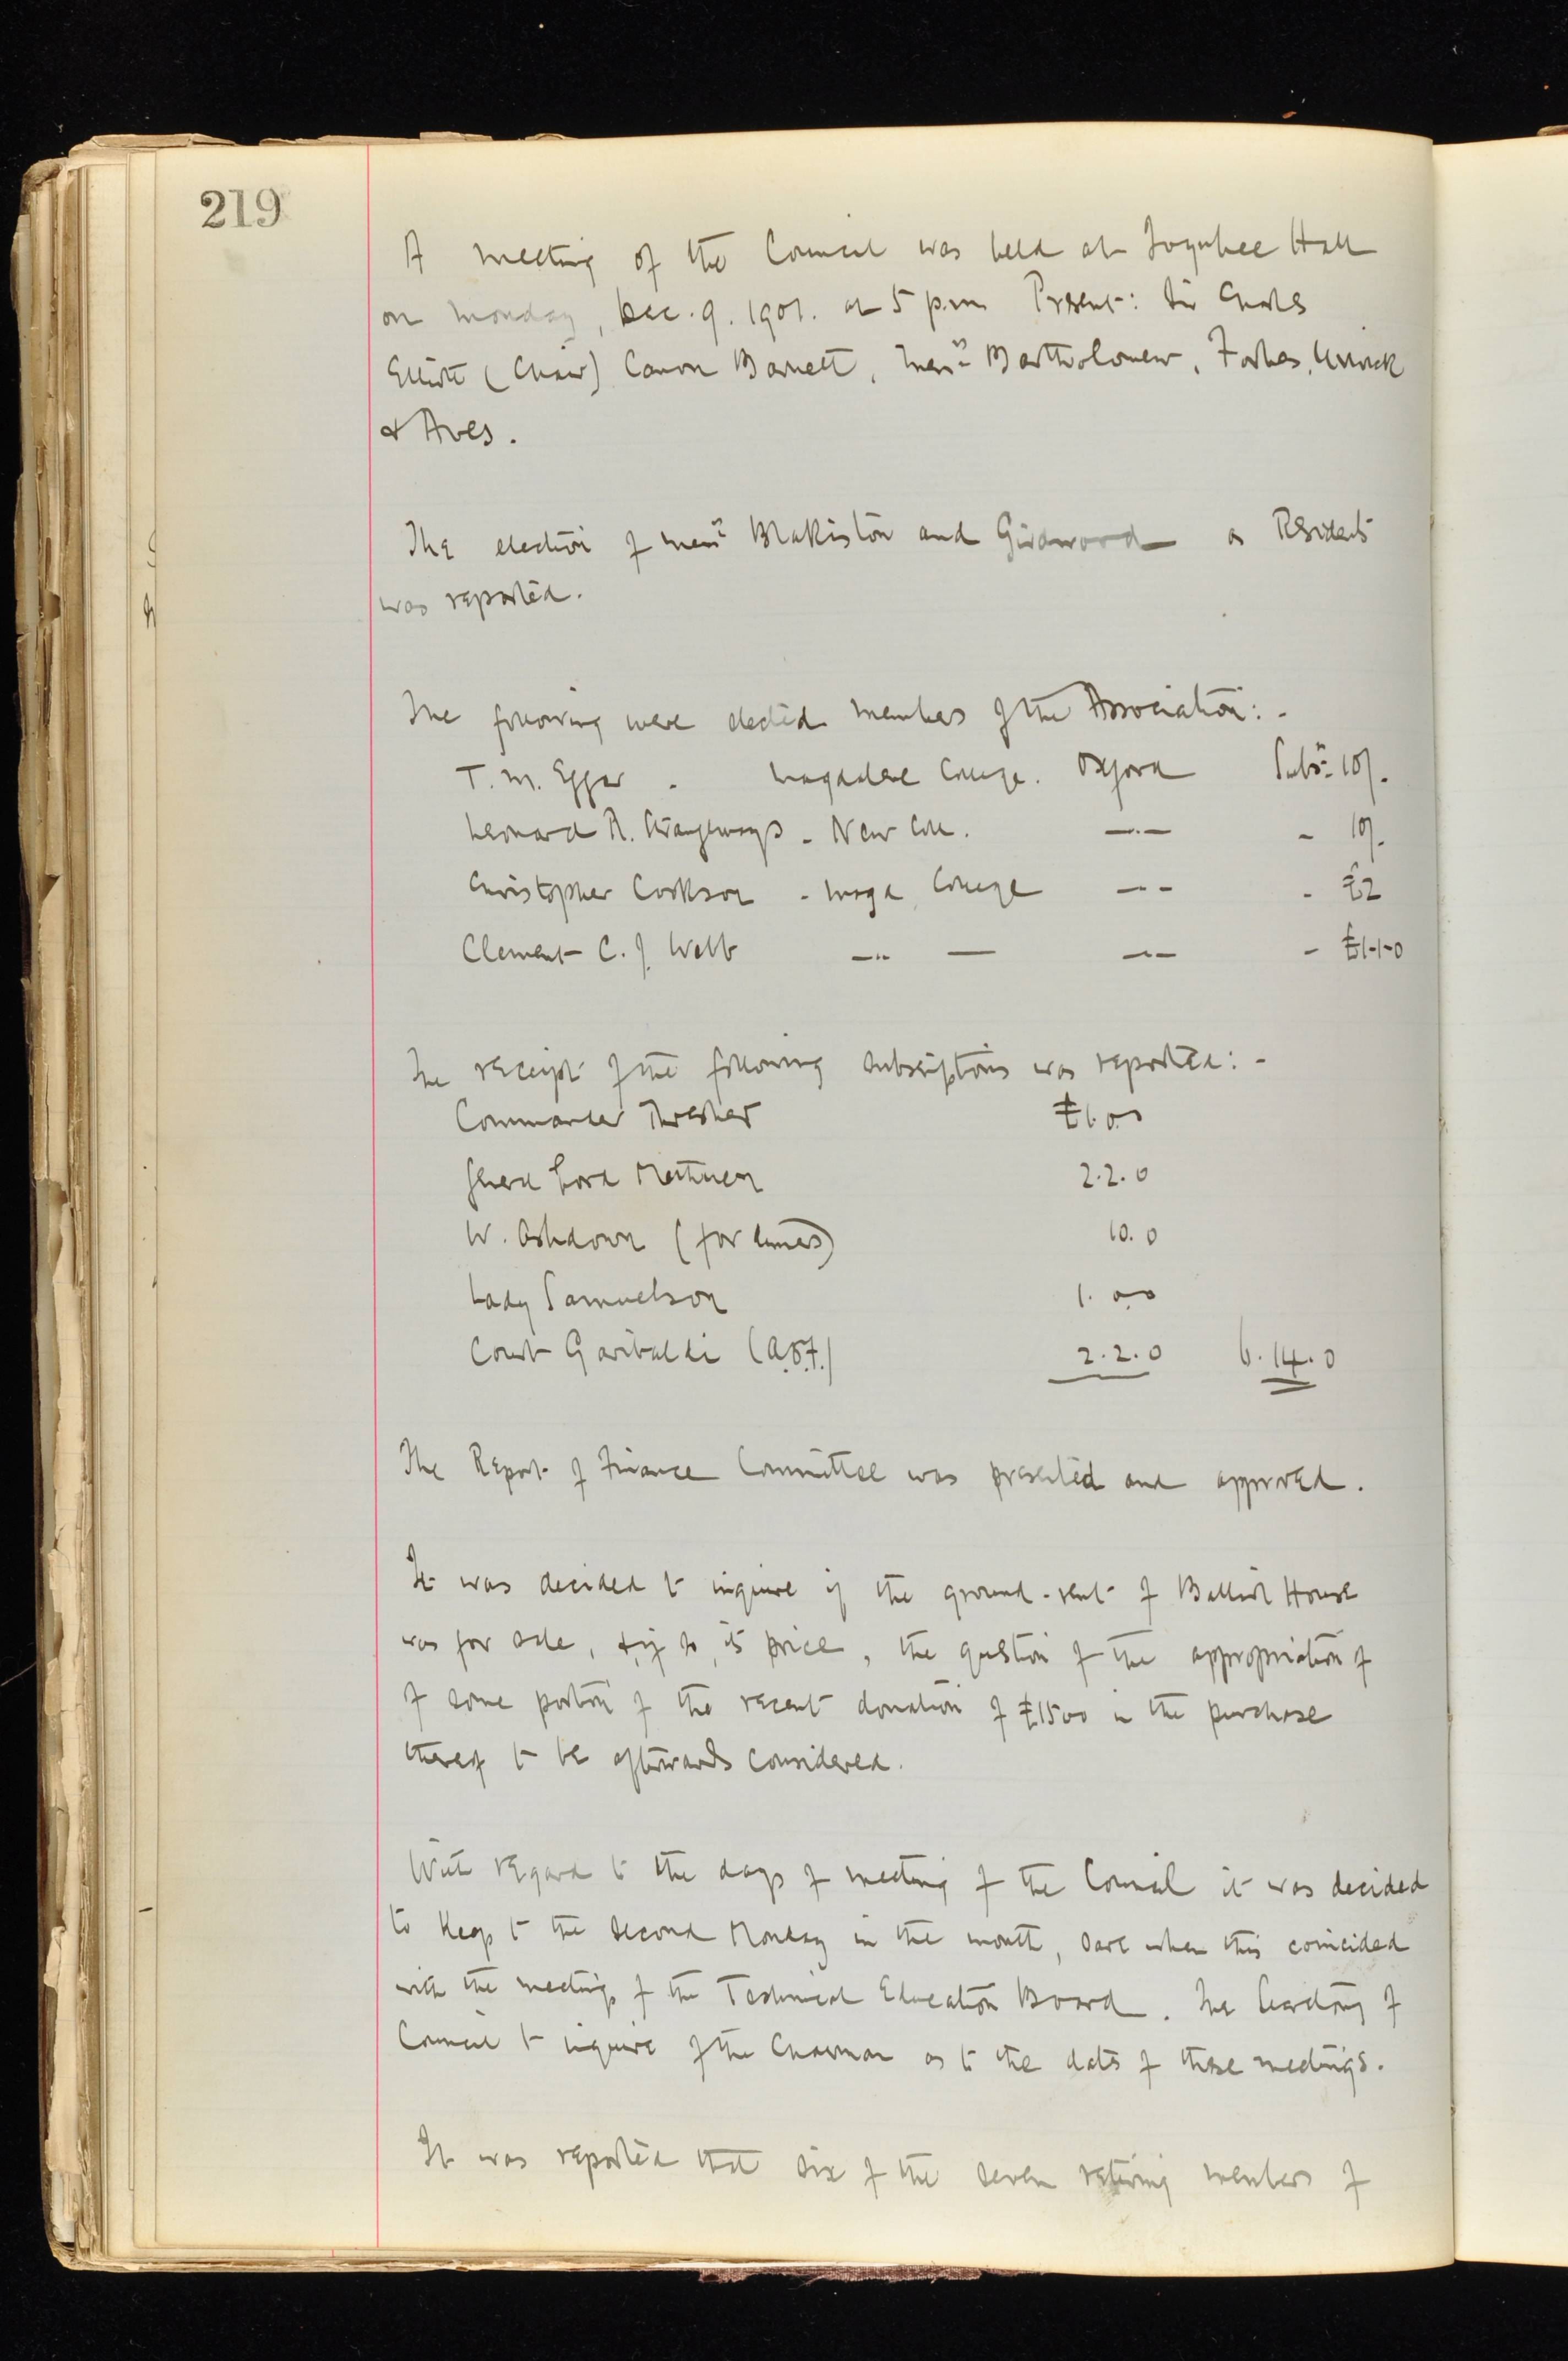 219
A meeting of the Council was held at Toynbee Hall
on Monday, Dec. 9. 1901. at 5 p.m. Present: Sir Charles
Elliott (Chair) Canon Barnett, Messrs Bartholomew, Forbes, Urwick
& Aves.
The election of Messrs Blakiston and Girdwood as Residents
was reported.
The following were elected members of the Association: -
T. M. Eggar - Magdalene College. Oxford Subn: 10/-
Leonard R. - New Coll. —"— - 10/-
Christopher Cookson - Magd. College —"— - £2
Clement C. J. Webb —"— — —"— - £1-1-0
The receipt of the following subscriptions was reported: -
Commander Thresher £1.0.0
General Lord Methuen 2.2.0
W. Ashdown (for) 10.0
Lady Samuelson 1.0.0
Court Garibaldi (A.O.F.) 2.2.0 6.14.0
The Report of Finance Committee was presented and approved.
It was decided to inquire if the ground-rent of Balliol House
was for sale, & if so, its price, the question of the appropriation of
of some portion of the recent donation of £1500 in the purchase
thereof to be afterwards considered.
With regard to the days of meeting of the Council it was decided
to keep to the second Monday in the month, save when this coincided
with the meetings of the Technical Education Board. The Secretary of
Council to inquire of the Chairman as to the dates of these meetings.
It was reported that six of the seven retiring members of